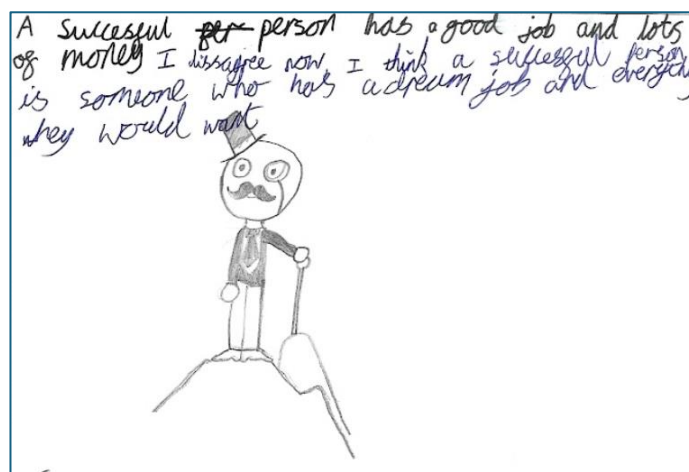 A succesful per person has a good job and lots
of money I dissagree now I think a succesful person
is someone who has a dream job and everything
they would want